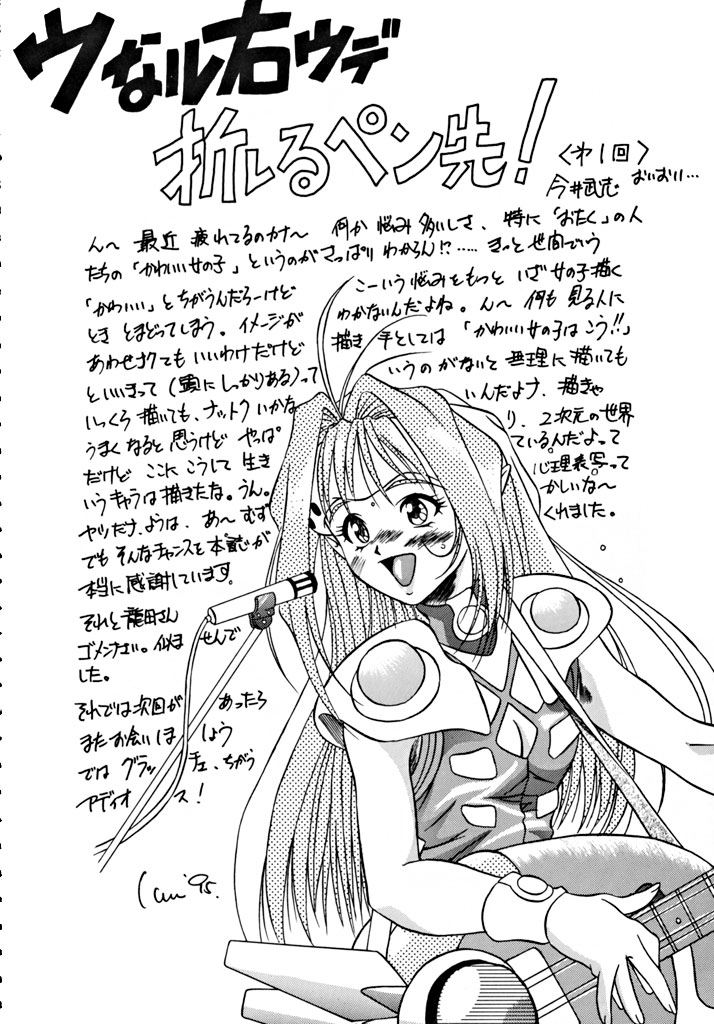 ウなル右ウデ
折れるペン先!
〈オ1回〉
今井武志
おいおい…
ん〜 最近 疲れてるのカナ〜 何か 悩み 多いしさ、特に「おたく」の人
たちの「かわいい女の子」というのがさっぱり わからん!?…… きっと世間でいう
「かわいい」とちがうんだろーけど こーいう悩みをもっと いざ女の子描く
とき とまどってしまう。イメージが わかないんだよね。ん〜 何も 見る人に
あわせなくても いいわけだけど 描き 手としては「かわいい女の子はこう!!」
といいきって(頭に しっかりある)って いうの がないと 無理に描いても
しっくら 描いても、ナットク いかな いんだよナ、描きゃ
うまく なると 思うけど やっぱ り、2次元の世界
だけど ここに こうして 生き ているんだよって
いうキャラは描きたな。うん。 心理表写って
ヤツだナ、ようは、あ〜 むず かしいな〜
でも そんなチャンスを 本誌が くれました。
本当に 感謝しています。
それと 龍田さん
ゴメンナさい。似ま せんで
した。
それでは次回が あったら
また お会いしま しょう
では グラッ チェ、ちがう
アディオ ス!
'95.